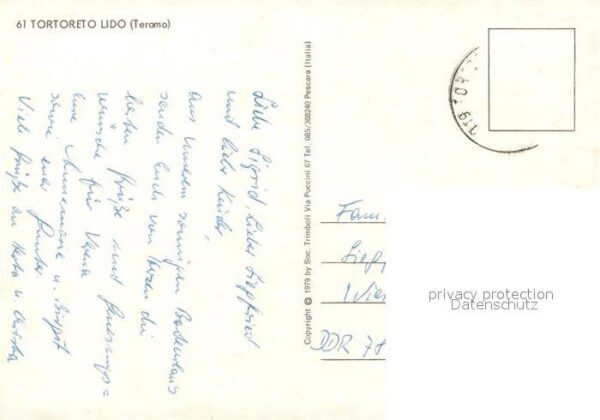 61 TORTORETO LIDO (Teramo)
Liebe Sigrid, lieber Siegfried
und liebe Kinder,
Aus unserem sonnigen Badeurlaub
senden Euch von Herzen die
besten Grüße und Genesungs=
wünsche für Verena
Eure Annemarie u.
sowie euer Gunter
Viele Grüße an Herta u. Christa
Copyright © 1979 by Soc. Trimboli Via Puccini 67 Tel. 085/388240 Pescara (Italia)
Fam.
Siegf
Wie
DDR 78
privacy protection
Datenschutz